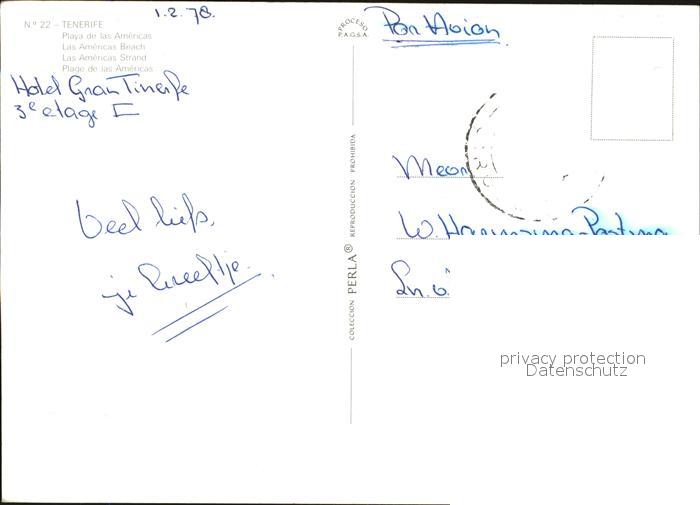 1.2.78.
N.º 22 – TENERIFE
Playa de las Américas
Las Américas Beach
Las Américas Strand
Plage de las Américas
Hotel Gran Tinerfe
3e etage E
Veel liefs,
je
PROCESO
P.A.G.S.A.
COLECCION PERLA® REPRODUCCION PROHIBIDA
Par Avion.
W.
privacy protection
Datenschutz